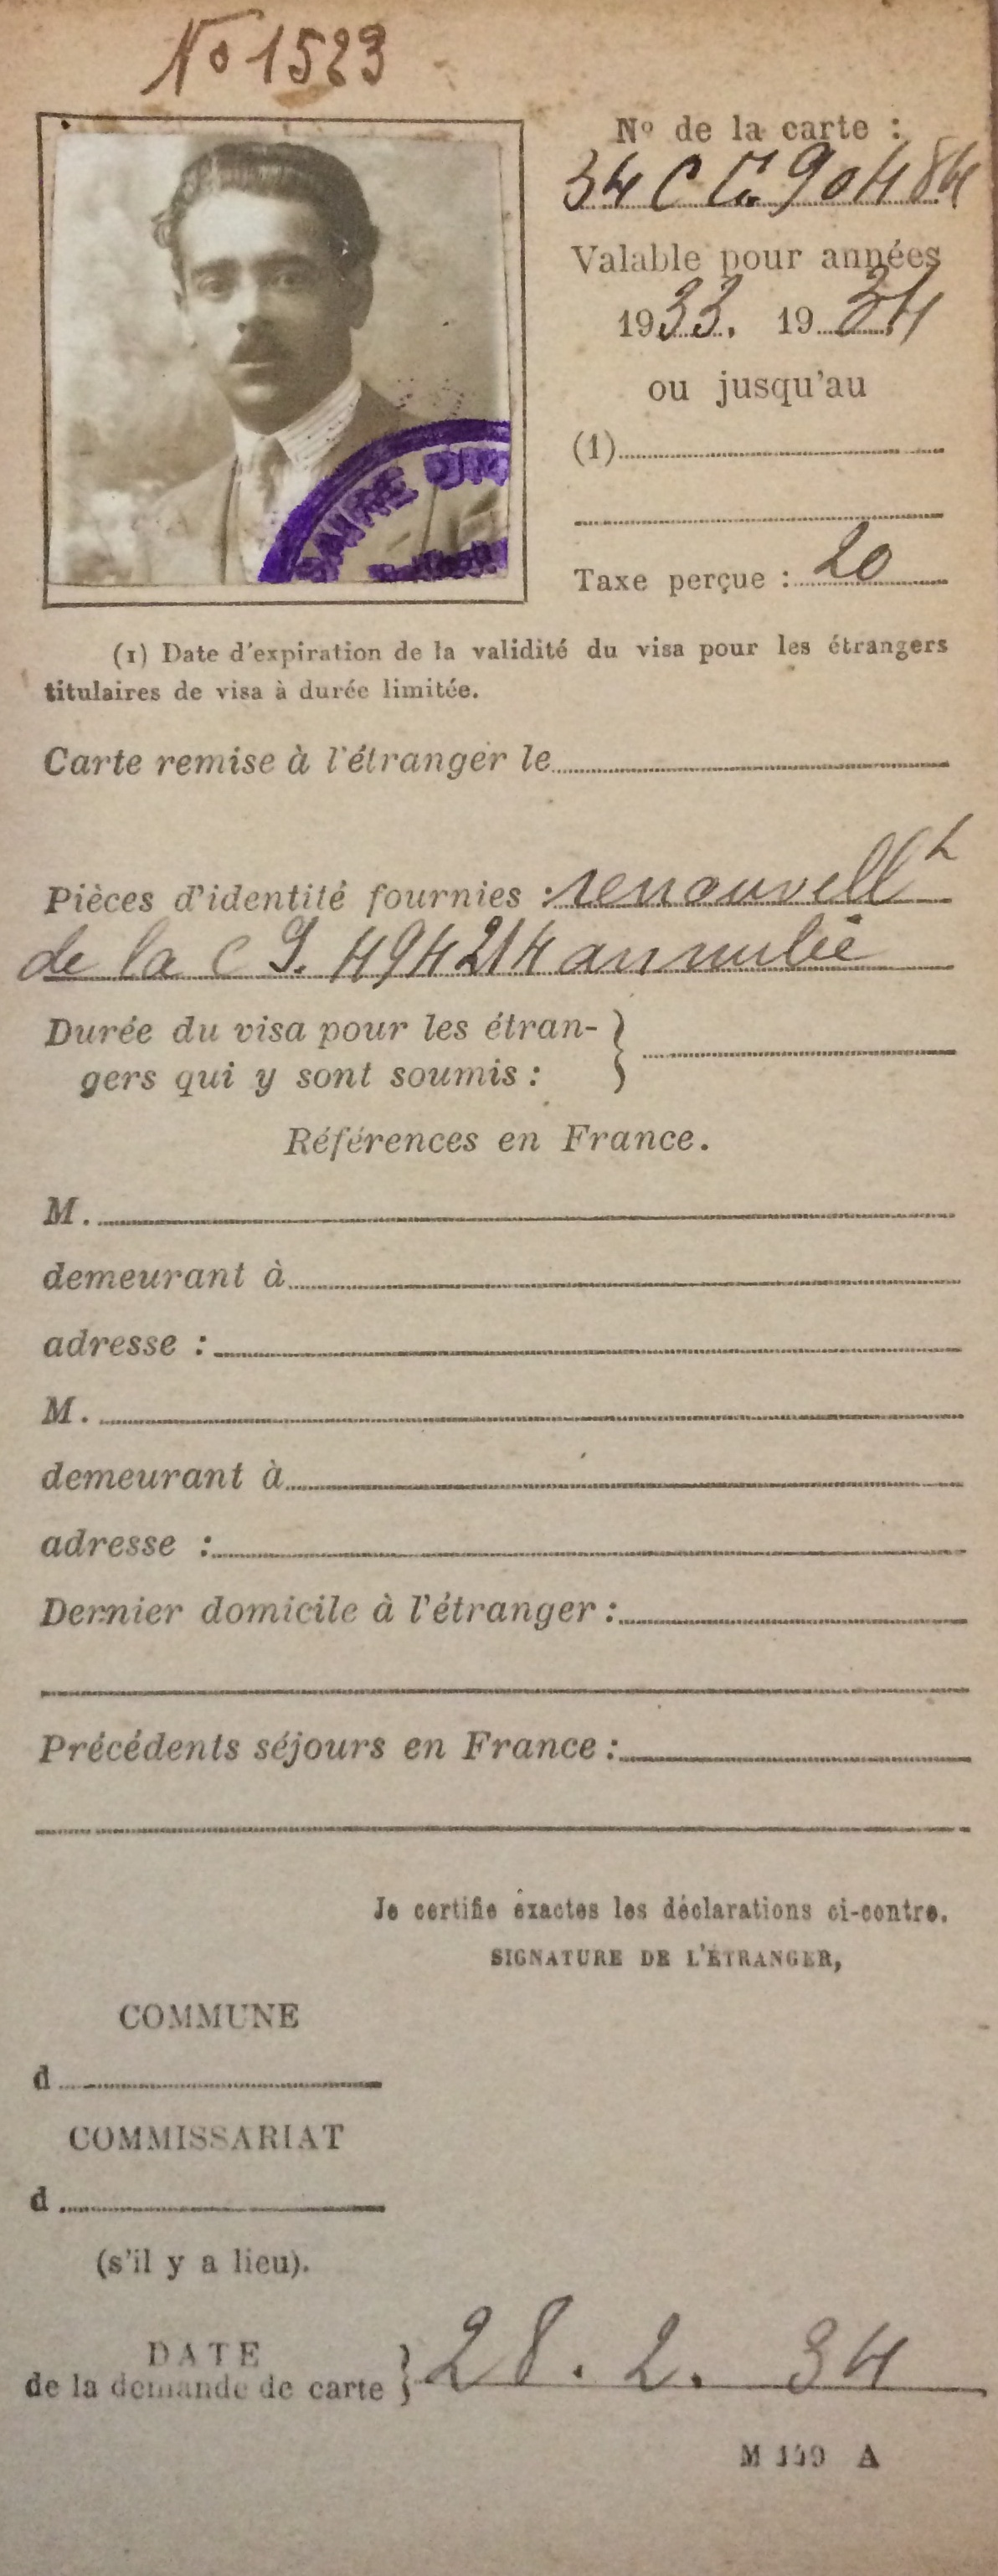 No 1523
No de la carte :
34 C C. 90484
Valable pour années
1933. 19 34
ou jusqu'au
(1)
Taxe perçue : 20
(1) Date d'expiration de la validité du visa pour les étrangers
titulaires de visa à durée limitée.
Carte remise à l'étranger le
Pièces d'identité fournies : renouvellt
de la c I. 494214 annulée
Durée du visa pour les étran-
gers qui y sont soumis :
Références en France.
M.
demeurant à
adresse :
M.
demeurant à
adresse :
Dernier domicile à l'étranger :
Précédents séjours en France :
Je certifie exactes les déclarations ci-contre.
SIGNATURE DE L'ÉTRANGER,
COMMUNE
d
COMMISSARIAT
d
(s'il y a lieu).
DATE
de la demande de carte } 28. 2. 34
M 149 A